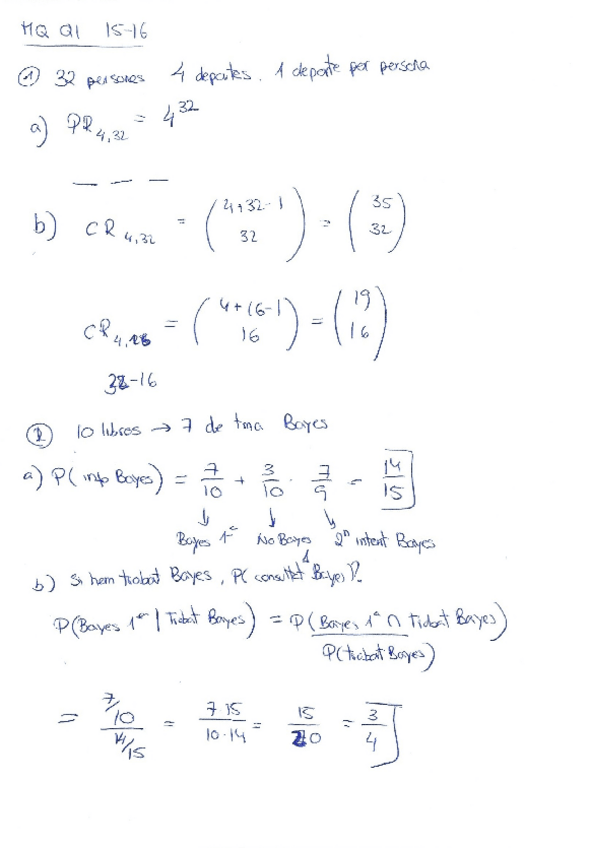 MQ Q1 15-16
① 32 persones 4 deportes. 1 deporte por persona
a) PR4,32 = 4^32
b) CR4,32 = (4+32-1 32) = (35 32)
CR4,16 = (4+16-1 16) = (19 16)
32-16
② 10 libros → 7 de tma Bayes
a) P(info Bayes) = 7/10 + 3/10 · 7/9 = 14/15
↓ ↓ ↓
Bayes 1er No Bayes 2n intent Bayes
b) Si hem trobat Bayes, P(consultat Bayes)?
1
P(Bayes 1er | Trobat Bayes) = P(Bayes 1er ∩ Trobat Bayes) / P(trobat Bayes)
= 7/10 / 14/15 = 7 15 / 10·14 = 15/20 = 3/4